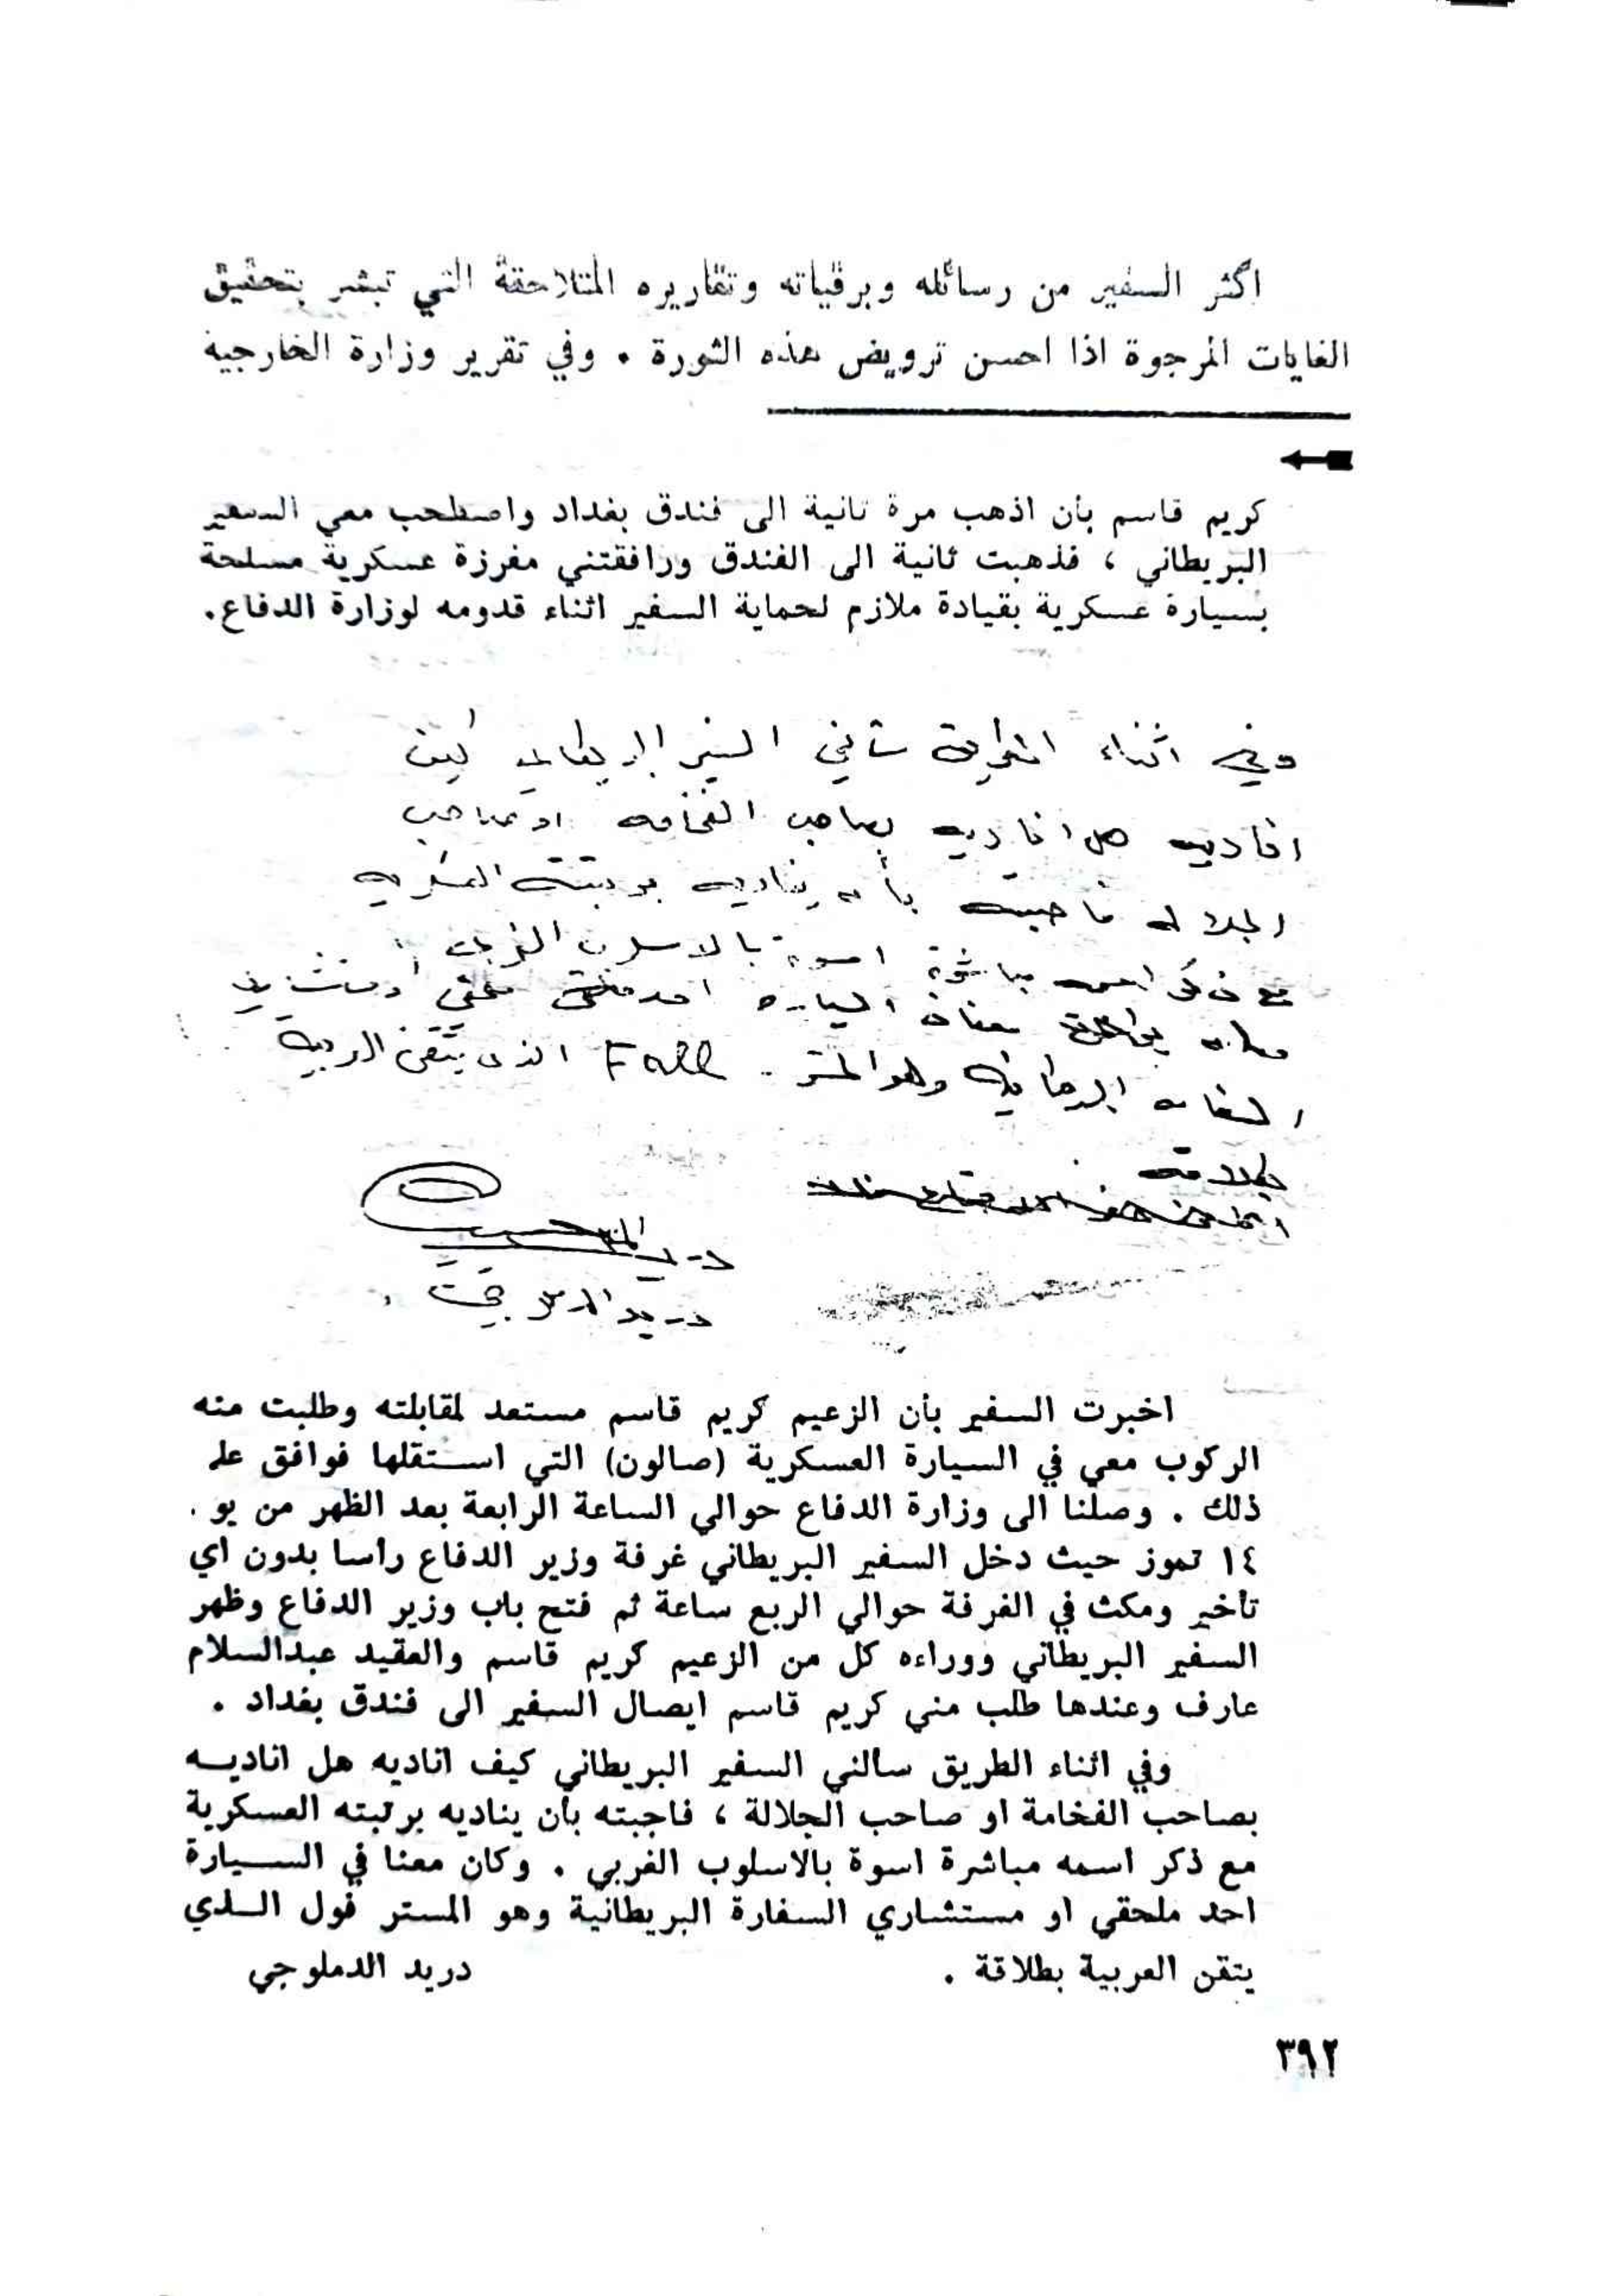 اكثر السفير من رسائله وبرقياته وتقاريره المتلاحقة التي تبشر بتحقيق
الغايات المرجوة اذا احسن ترويض هذه الثورة . وفي تقرير وزارة الخارجية
كريم قاسم بأن اذهب مرة ثانية الى فندق بغداد واصطحب معي السفير
البريطاني ، فذهبت ثانية الى الفندق ورافقتني مفرزة عسكرية مسلحة
بسيارة عسكرية بقيادة ملازم لحماية السفير اثناء قدومه لوزارة الدفاع.
وفي اثناء الطريق سألني السفير البريطاني كيف
اناديه هل اناديه بصاحب الفخامه او صاحب
الجلاله فاجبته بأن يناديه برتبته العسكريه
مع ذكر اسمه مباشرة اسوة بالاسلوب الغربي
وكان معنا السيارة احد ملحقي او مستشاري
السفاره البريطانيه وهو المستر Fall الذي يتقن العربيه
بطلاقه
دريد الدملوجي
اخبرت السفير بأن الزعيم كريم قاسم مستعد لمقابلته وطلبت منه
الركوب معي في السيارة العسكرية (صالون) التي استقلها فوافق على
ذلك . وصلنا الى وزارة الدفاع حوالي الساعة الرابعة بعد الظهر من يو .
١٤ تموز حيث دخل السفير البريطاني غرفة وزير الدفاع راسا بدون اي
تأخير ومكث في الغرفة حوالي الربع ساعة ثم فتح باب وزير الدفاع وظهر
السفير البريطاني ووراءه كل من الزعيم كريم قاسم والعقيد عبدالسلام
عارف وعندها طلب مني كريم قاسم ايصال السفير الى فندق بغداد .
وفي اثناء الطريق سألني السفير البريطاني كيف اناديه هل اناديه
بصاحب الفخامة او صاحب الجلالة ، فاجبته بأن يناديه برتبته العسكرية
مع ذكر اسمه مباشرة اسوة بالاسلوب الغربي . وكان معنا في السيارة
احد ملحقي او مستشاري السفارة البريطانية وهو المستر فول الذي
يتقن العربية بطلاقة . دريد الدملوجي
٣٩٢